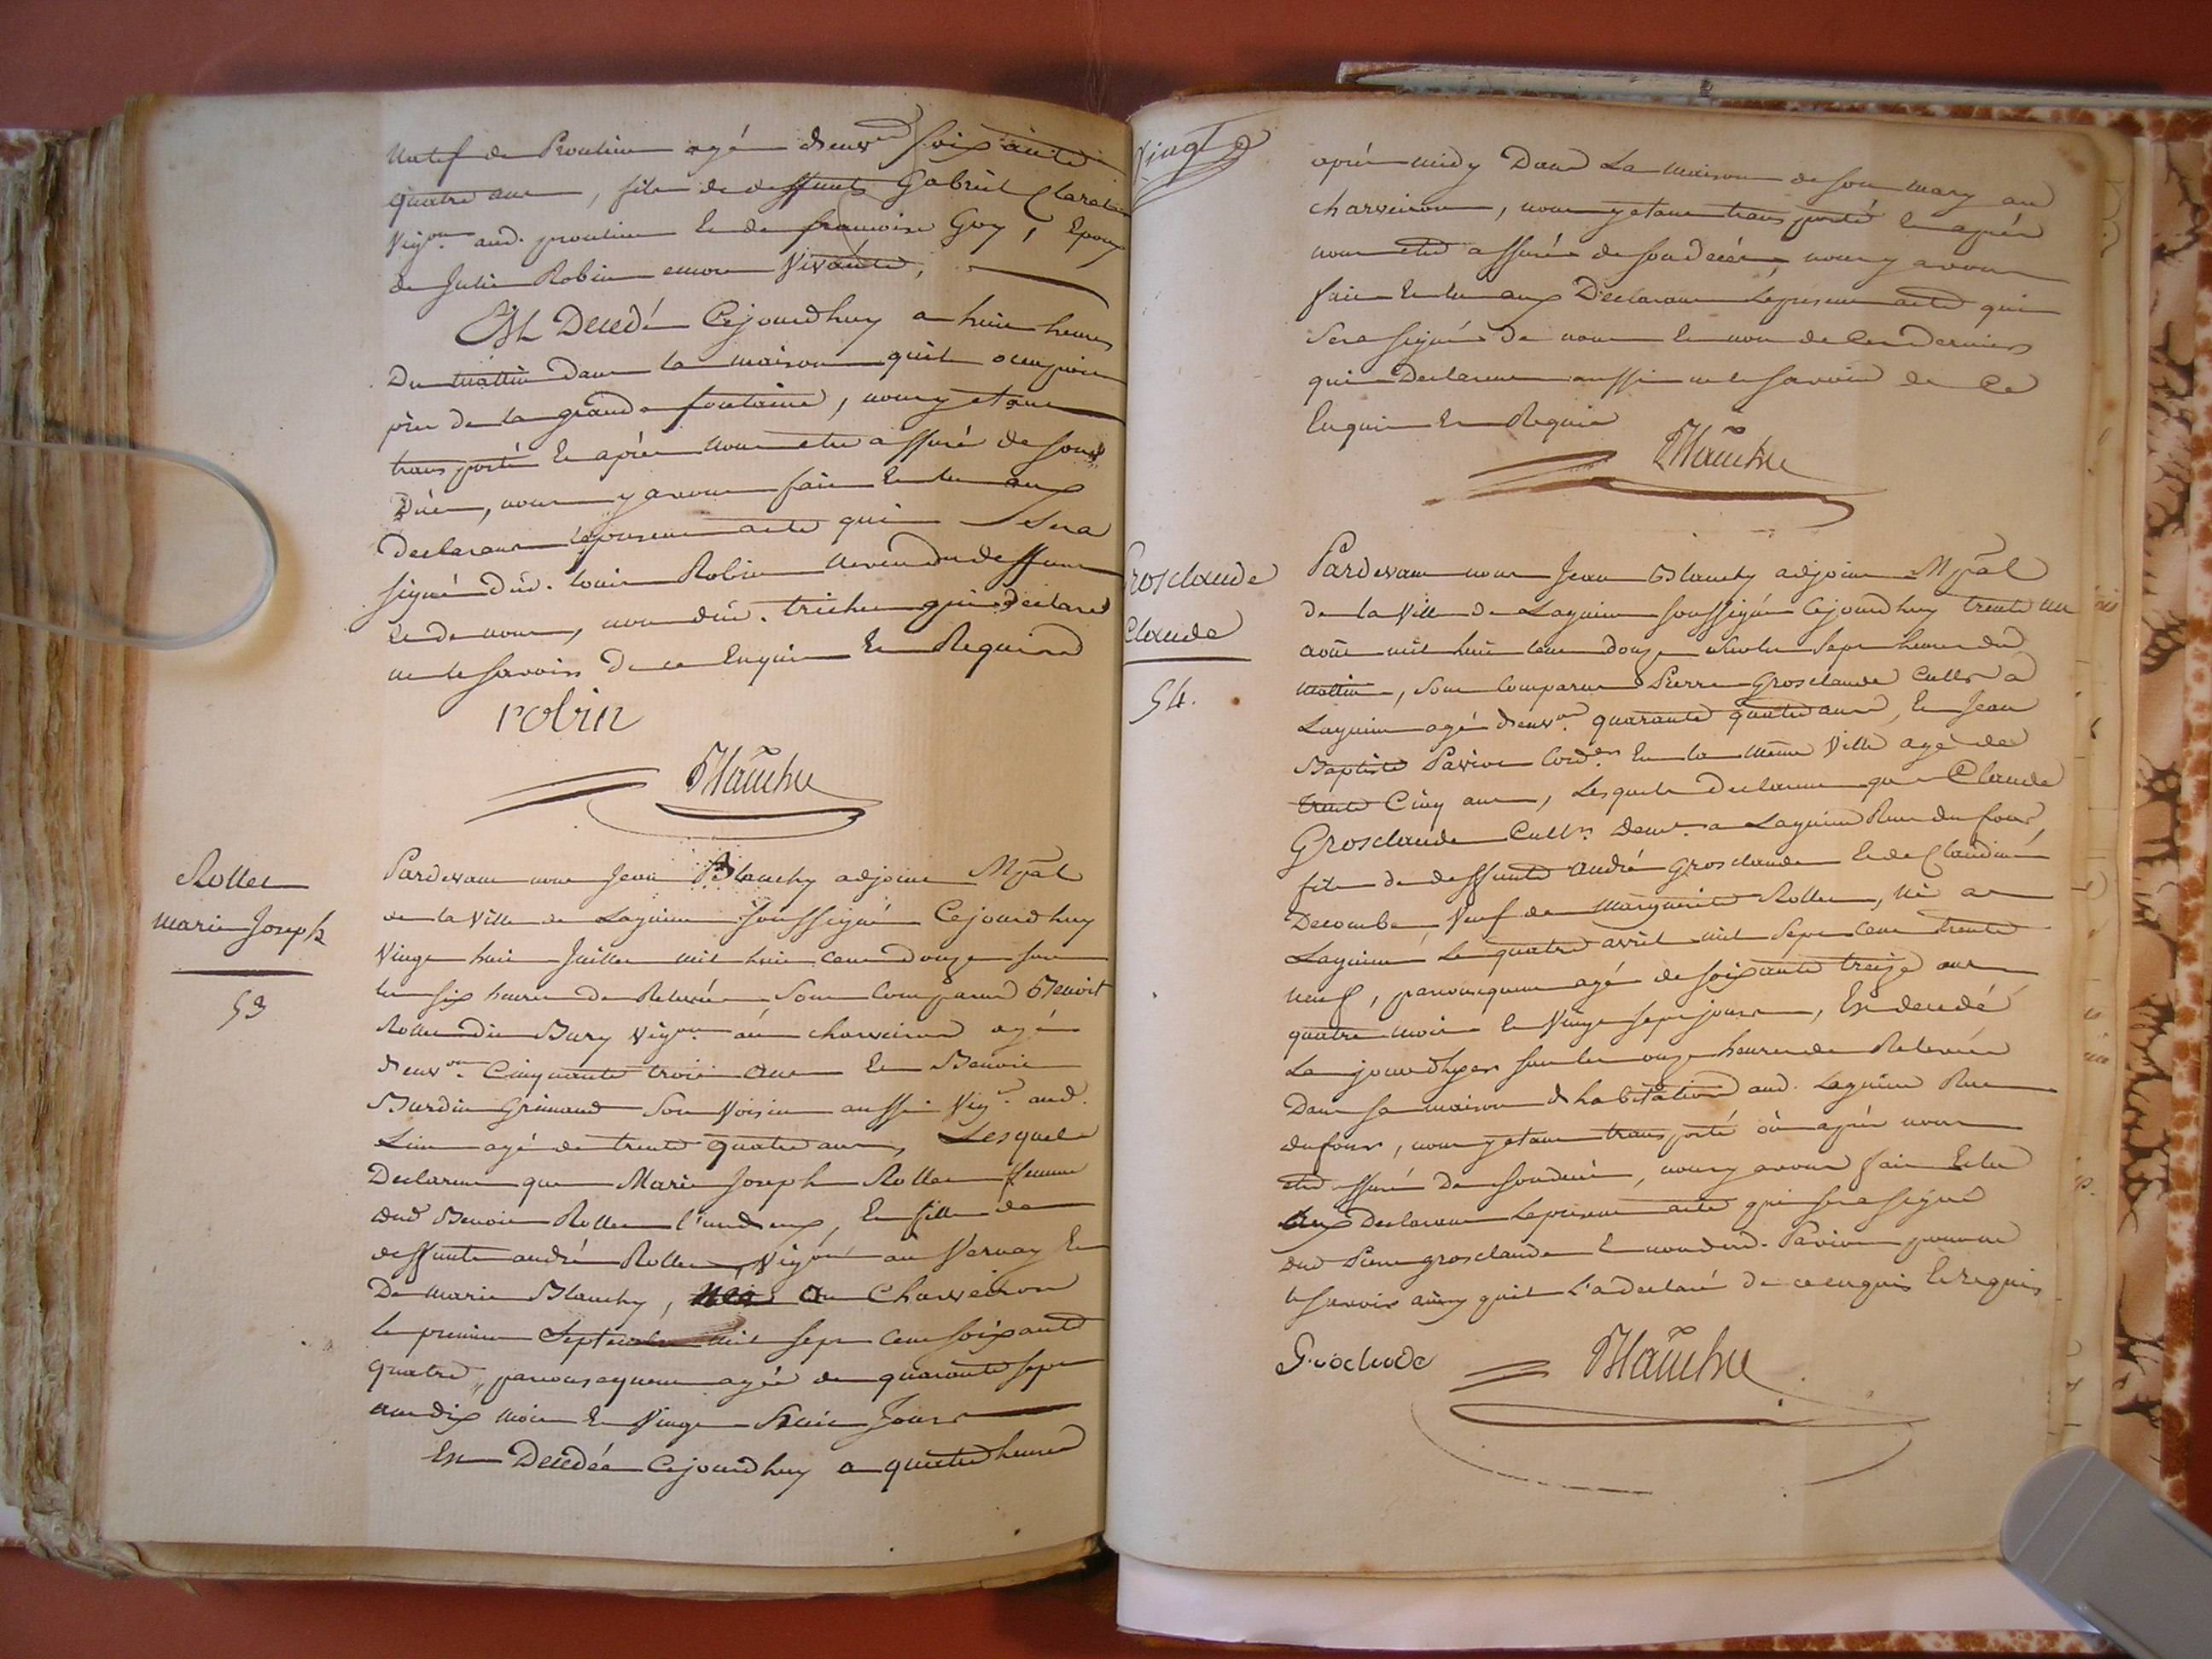 Natif de Proulieu agé d'env.on soixante
quatre ans, fils de deffunts Gabriel Claratin
Vig.on aud. proulieu et de francoise Goy, Epoux
de Julie Robin encore Vivante,
Est Decedé Cejourdhuy a huit heures
Du mattin dans la maison quil occupoit
près de la grande fontaine, nous y etant
transporté et après nous etre assuré de son
Décès, nous y avons fait et lu aux
Declarants le present acte qui sera
signé dud. Louis Robin neveu du deffunt
et de nous, non dud. trichet qui declare
ne le savoir De ce Enquis Et Requis
robin
Blanchy
Rollet
Marie Joseph
53
Pardevant nous Jean Blanchy adjoint Mpãl
de la Ville de Lagnieu soussigné Cejourdhuy
Vingt huit Juillet mil huit cent douze sur
les six heures De Relevée sont Comparus Benoit
Rollet dit Bury vig.on au charveiron agé
d'env.on Cinquante trois ans Et Benoit
Burdin Grimaud son Voisin aussi Vig.on aud.
Lieu agé de trente quatre ans, Lesquels
Declarent que Marie Joseph Rollet femme
dud Benoit Rollet l'un d'eux, et fille de
deffunts andré Rollet, Vig.on au Vernay Et
De marie Blanchy, née au Charveiron
le premier Septembre mil sept cent soixante
quatre, parconsequent agée de quarante sept
ans dix mois et Vingt huit Jours
Est Decedée Cejourdhuy a quatre heures
Vingt
après midy Dans La maison de son mary au
charveiron, nous y etant transporté et après
nous etre assuré de son decés, nous y avons
fait et lu aux Declarants le present acte qui
sera signé De nous et non de Ces Derniers
qui Declarent aussi ne le savoir de ce
Enquis Et Requis
Blanchy
Grosclaude
Claude
54.
Pardevant nous Jean Blanchy adjoint Mpãl
de la Ville De Lagnieu soussigné Cejourdhuy trente un
août mil huit cent douze sur les sept heures du
mattin, sont Comparus Pierre Grosclaude Cult.r a
Lagnieu agé d'env.on quarante quatre ans, Et Jean
Baptiste Pavion Cord.er En la même Ville agé de
trente Cinq ans, Lesquels declarent que Claude
Grosclaude Cult.r dem.t a Lagnieu Rue du four
fils de deffunts andré Grosclaude et de Claudine
Decombe, Veuf de marguerite Rollet, né a
Lagnieu Le quatre avril mil Sept cent trente
neuf, parconsequent agé de soixante treize ans
quatre mois et Vingt sept jours, Est decedé
Le jourdhyer sur les onze heures de Relevée
Dans sa maison d'habitation aud. Lagnieu Rue
du four, nous y etant transporté où après nous
etre assuré De son decés, nous y avons fait et lu
aux Declarants Le present acte qui sera signé
dud Pierre grosclaude et non dud. Pavion pour ne
le savoir ainsy quil l'a declaré de ce enquis Et requis
Groclode
Blanchy